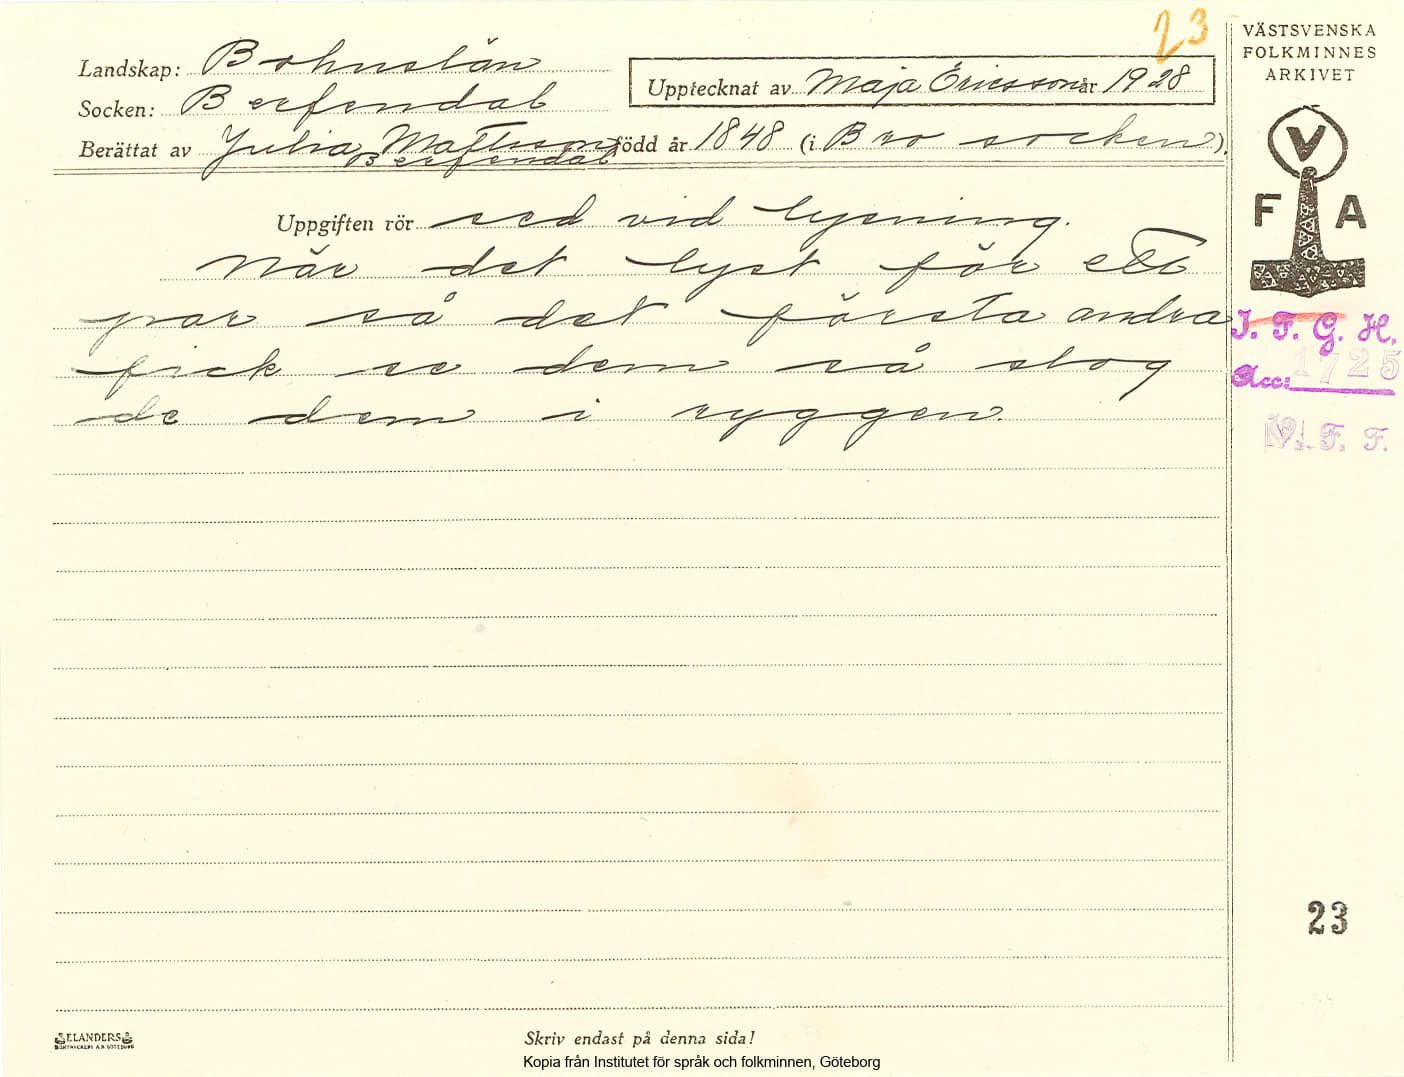 23
VÄSTSVENSKA
FOLKMINNES
ARKIVET
Landskap: Bohuslän
Socken: Berfendal
Upptecknat av Maja Ericsson år 1928
Berättat av Julia Mattsson född år 1848 (i Bro socken).
Berfendal
V
F A
Uppgiften rör sed vid lysning.
När det lyst för ett
par så det första andra
fick se dem så slog
de dem i ryggen.
I. F. G. H.
Acc: 1725
V. F. F.
23
ELANDERS
BOKTRYCKERI A.B. GÖTEBORG
Skriv endast på denna sida!
Kopia från Institutet för språk och folkminnen, Göteborg